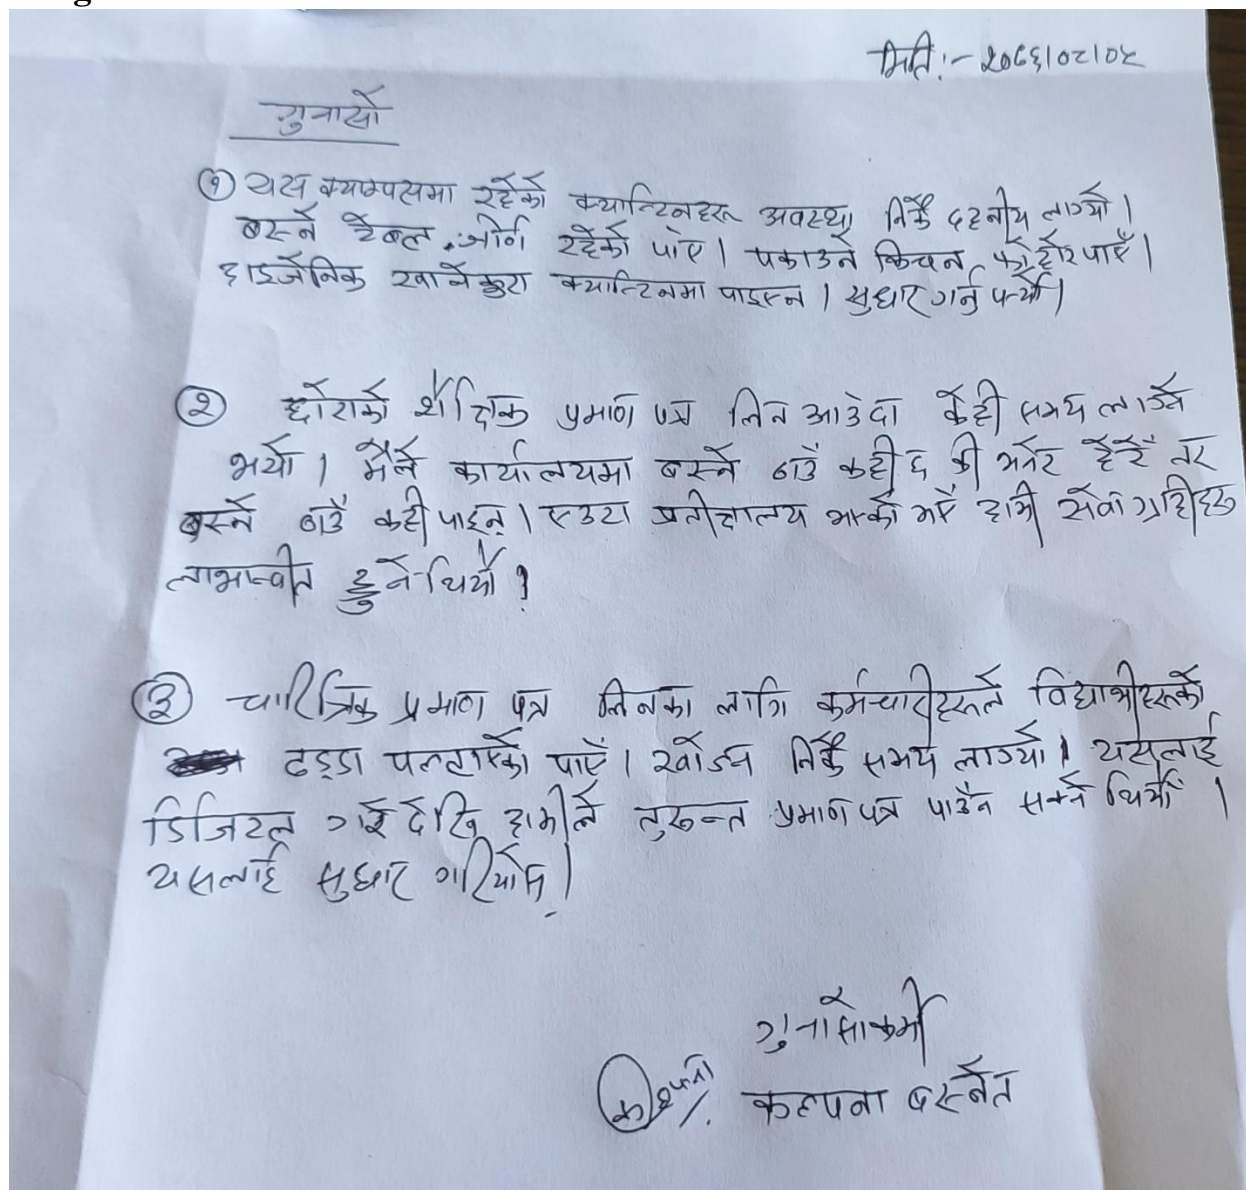 मिति:- २०८१।०८।०५
गुनासो
① यस क्याम्पसमा रहेको क्यान्टिनहरू अवस्था निकै दयनीय लाग्यो।
बस्ने टेबल जीर्ण रहेको पाँए। पकाउने किचन फोहोर पाएँ।
हाइजेनिक खानेकुरा क्यान्टिनमा पाइएन। सुधार गर्नु पर्यो।
② छोराको शैक्षिक प्रमाण पत्र लिन आउँदा केही समय लाग्ने
भयो। मैले कार्यालयमा बस्ने ठाउँ कही छ की भनेर हेरेँ तर
बस्ने ठाउँ कही पाइन्। एउटा प्रतीक्षालय भएको भए हामी सेवाग्राहीहरू
लाभान्वीत हुने थियौ ?
③ चारित्रिक प्रमाण पत्र लिनका लागि कर्मचारीहरूले विद्यार्थीहरूको
ढड्डा पल्टाएको पाएँ। खोज्न निकै समय लाग्यो। यसलाई
डिजिटल गरेदेखि हामीले तुरून्त प्रमाण पत्र पाउन सक्ने थियौँ।
यसलाई सुधार गरियोस्।
गुनासोकर्मी
कल्पना बस्नेत